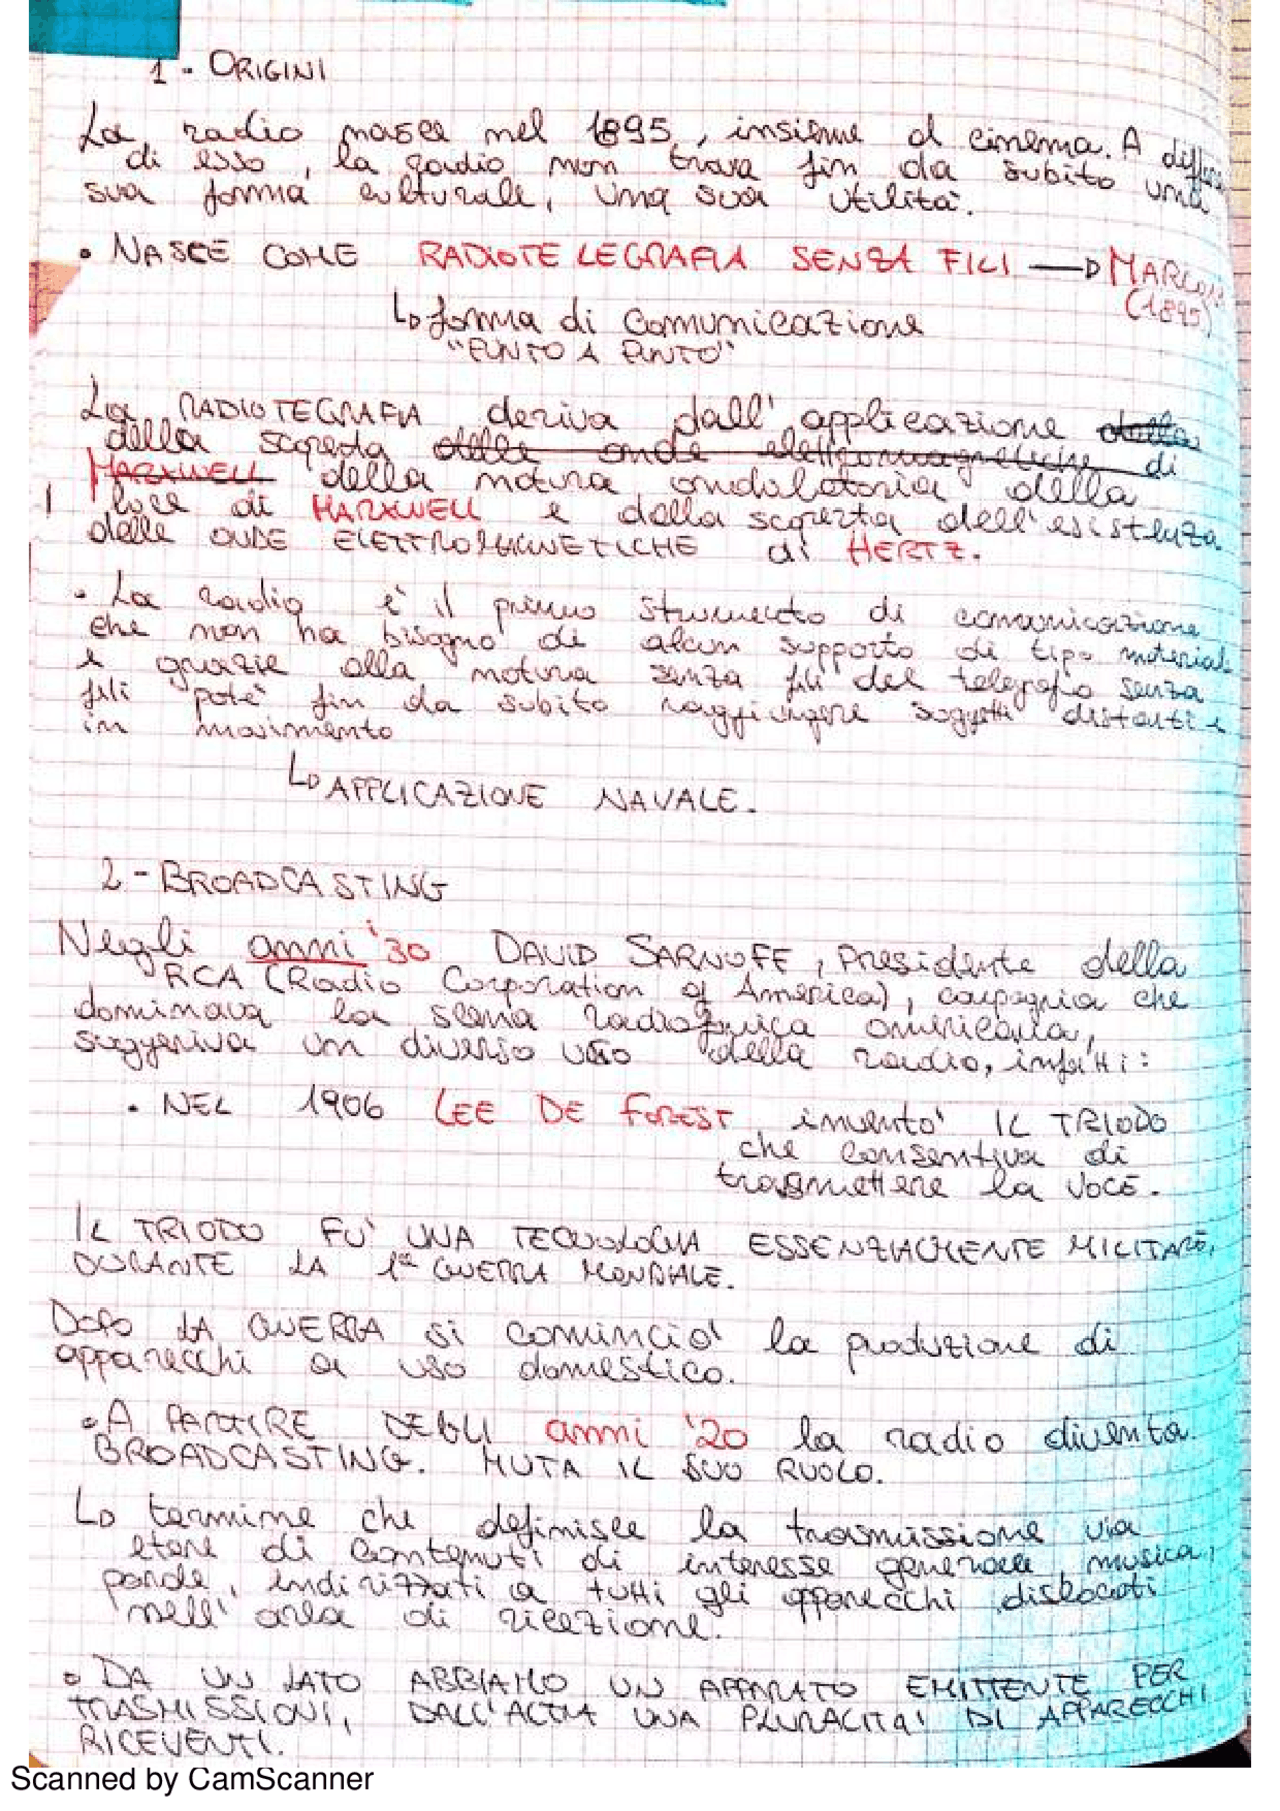 1 - ORIGINI
La radio nasce nel 1895, insieme al cinema. A
di esso, la radio non trova fin da subito una
sua forma culturale, una sua utilità.
• NASCE COME RADIOTELEGRAFIA SENZA FILI —> MARCONI
(1895)
↳ forma di comunicazione
"PUNTO A PUNTO"
La RADIOTEGRAFIA deriva dall'applicazione della
della scoperta delle onde elettromagnetiche di
MARXWELL della natura ondulatoria della
luce di MARXWELL e della scoperta dell'esistenza
delle ONDE ELETTROMAGNETICHE di HERTZ.
• La radio è il primo strumento di comunicazione
che non ha bisogno di alcun supporto di tipo materiale
e grazie alla natura senza fili del telegrafo senza
fili potè fin da subito raggiungere soggetti distanti e
in movimento
↳ APPLICAZIONE NAVALE.
2 - BROADCASTING
Negli anni '30 DAVID SARNOFF, presidente della
RCA (Radio Corporation of America), compagnia che
dominava la scena radiofonica americana,
suggeriva un diverso uso della radio, infatti:
• NEL 1906 LEE DE FOREST inventò IL TRIODO
che consentiva di
trasmettere la voce.
IL TRIODO FU' UNA TECNOLOGIA ESSENZIALMENTE MILITARE,
DURANTE LA 1ª GUERRA MONDIALE.
DOPO LA GUERRA si cominciò la produzione di
apparecchi a uso domestico.
• A PARTIRE DEGLI anni '20 la radio diventa
BROADCASTING. MUTA IL SUO RUOLO.
↳ termine che definisce la trasmissione via
etere di contenuti di interesse generale, musica,
parole, indirizzati a tutti gli apparecchi dislocati
nell'area di ricezione.
• DA UN LATO ABBIAMO UN APPARATO EMITTENTE PER
TRASMISSIONI, DALL'ALTRA UNA PLURALITA' DI APPARECCHI
RICEVENTI.
Scanned by CamScanner